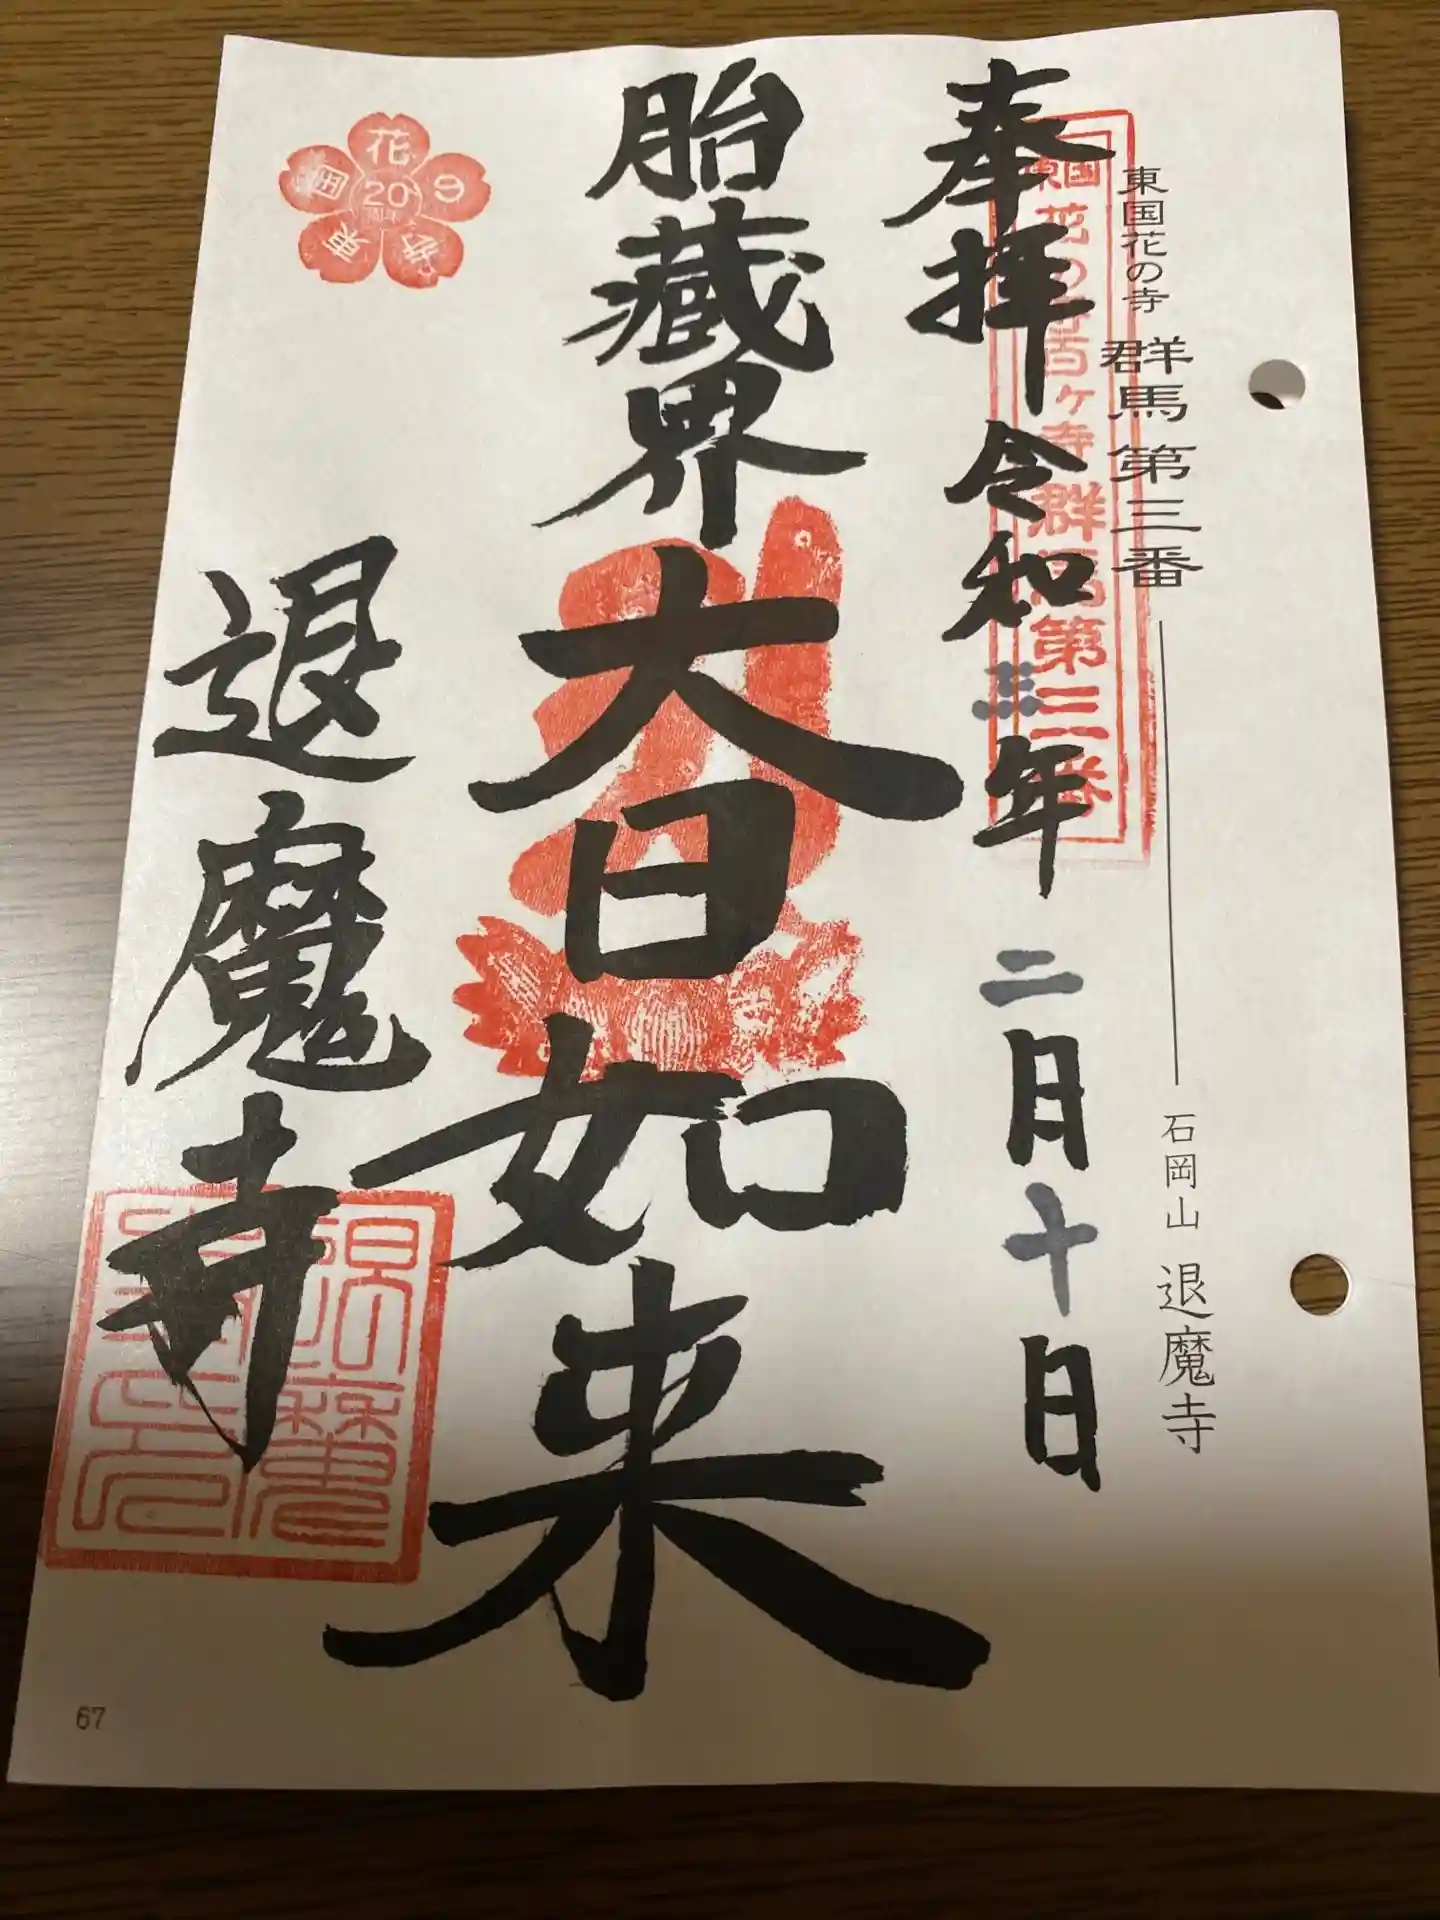 東国花の寺 群馬第三番 石岡山 退魔寺
東国花の寺百ヶ寺群馬第三番
奉拝 令和三年二月十日
胎蔵界大日如来
退魔寺
花の寺 東国
20
67